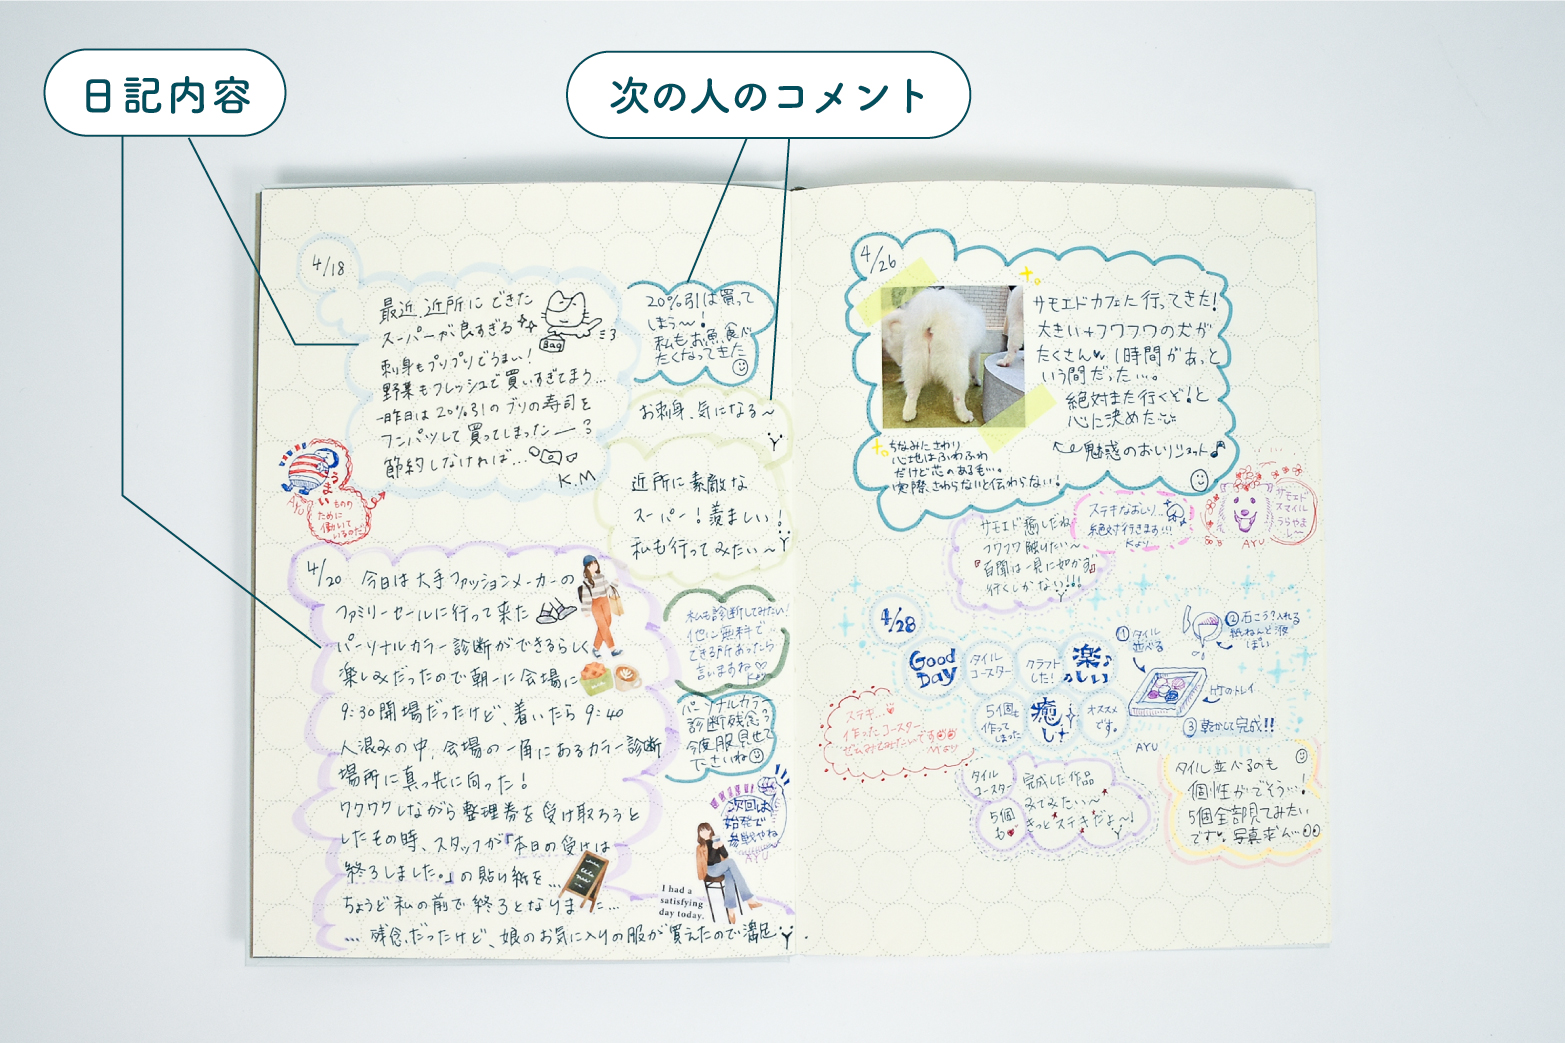 日記内容
次の人のコメント
4/18
最近、近所にできた
スーパーが良すぎる
刺身もプリプリでうまい!
野菜もフレッシュで買いすぎてまう…
一昨日は20%引のブリの寿司を
フンパツして買ってしまった
節約しなければ…
K.M
Bag
うまい
ものの
ために
働いて
いるのだ
AYU
20%引は買って
しまう〜!
私もお魚食べ
たくなってきた
お刺身、気になる〜
近所に素敵な
スーパー!羨ましい!
私も行ってみたい〜
4/20 今日は大手ファッションメーカーの
ファミリーセールに行って来た
パーソナルカラー診断ができるらしく
楽しみだったので朝一に会場に
9:30開場だったけど、着いたら9:40
人混みの中、会場の一角にあるカラー診断
場所に真っ先に向った!
ワクワクしながら整理券を受け取ろうと
したもの時、スタッフが『本日の受けは
終了しました。』の貼り紙を…
ちょうど私の前で終了となりました…
… 残念だったけど、娘のお気に入りの服が買えたので満足
私も診断してみたい!
他に無料で
できる所あったら
言いますね♡
Kより
パーソナルカラー
診断残念っ
今度服見せて
下さいね
次回は
始発で
参戦やね
AYU
I had a
satisfying
day today.
4/26
サモエドカフェに行ってきた!
大きい+フワフワの犬が
たくさん♥1時間があっと
いう間だった…。
絶対また行くぞ!と
心に決めた
魅惑のおしりショット♪
ちなみにさわり
心地はふわふわ
だけど芯のある毛…。
実際、さわらないと伝わらない!
サモエド癒しだね
フワフワ触りたい〜
『百聞は一見に如かず』
行くしかない!!!
ステキなおしり…
絶対行きます!!!
Kより
サモエド
スマイル
うらやま
し〜
AYU
4/28
GOOD
DAY
タイル
コースター
クラフト
した!
楽しい♪
5個も
作って
しまった
癒し!
オススメ
です。
①タイル
並べる
②石こう?入れる
紙ねんど液
っぽい
竹のトレイ
③乾かして完成!!
AYU
ステキ…
作ったコースター
ぜひみてみたいです
Mより
タイル
コースター
5個
も
完成した作品
みてみたい〜
きっとステキだよ〜!
タイル並べるのも
個性がでそう…!
5個全部見てみたい
です♥写真求ム…